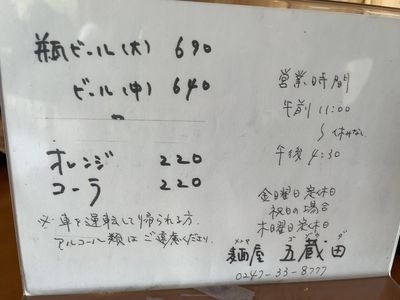 瓶ビール(大) 690
ビール(中) 640
オレンジ 220
コーラ 220
※ 車を運転して帰られる方、
アルコール類はご遠慮ください。
営業時間
午前 11:00
〜 休みなし
午後 4:30
金曜日定休日
祝日の場合
木曜日定休日
麺屋 五蔵田
0247-33-8777